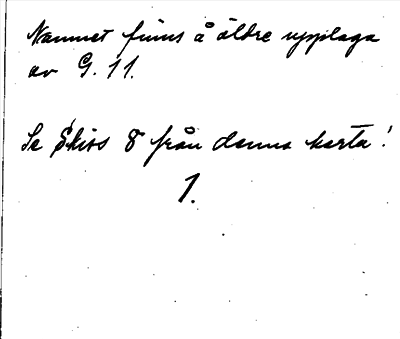 Namnet finns å äldre upplaga
av G. 11.
Se Skiss 8 från denna karta!
1.